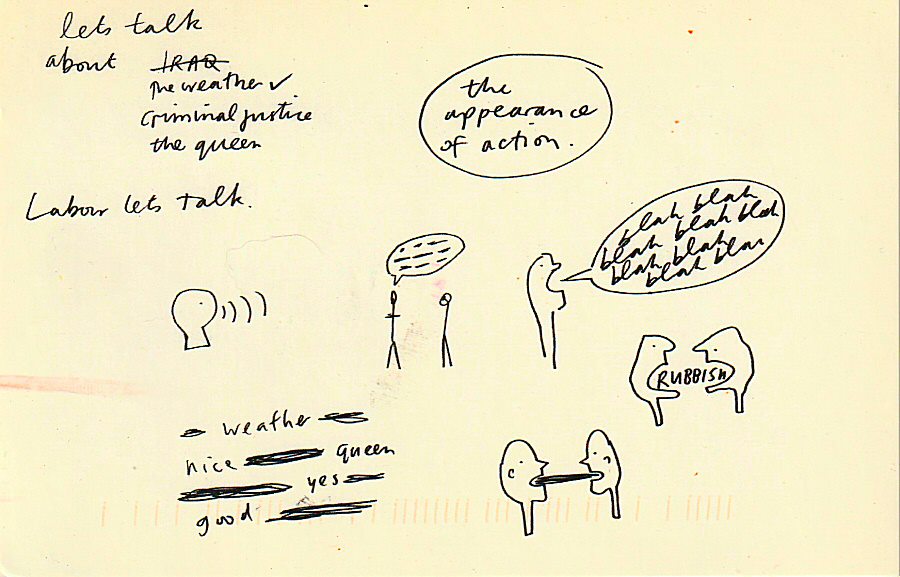 lets talk
about IRAQ
the weather ✓
criminal justice
the queen
the
appearance
of action.
Labour lets talk.
blah blah
blah blah blah
blah blah
blah blah
RUBBISH
weather
nice queen
yes
good